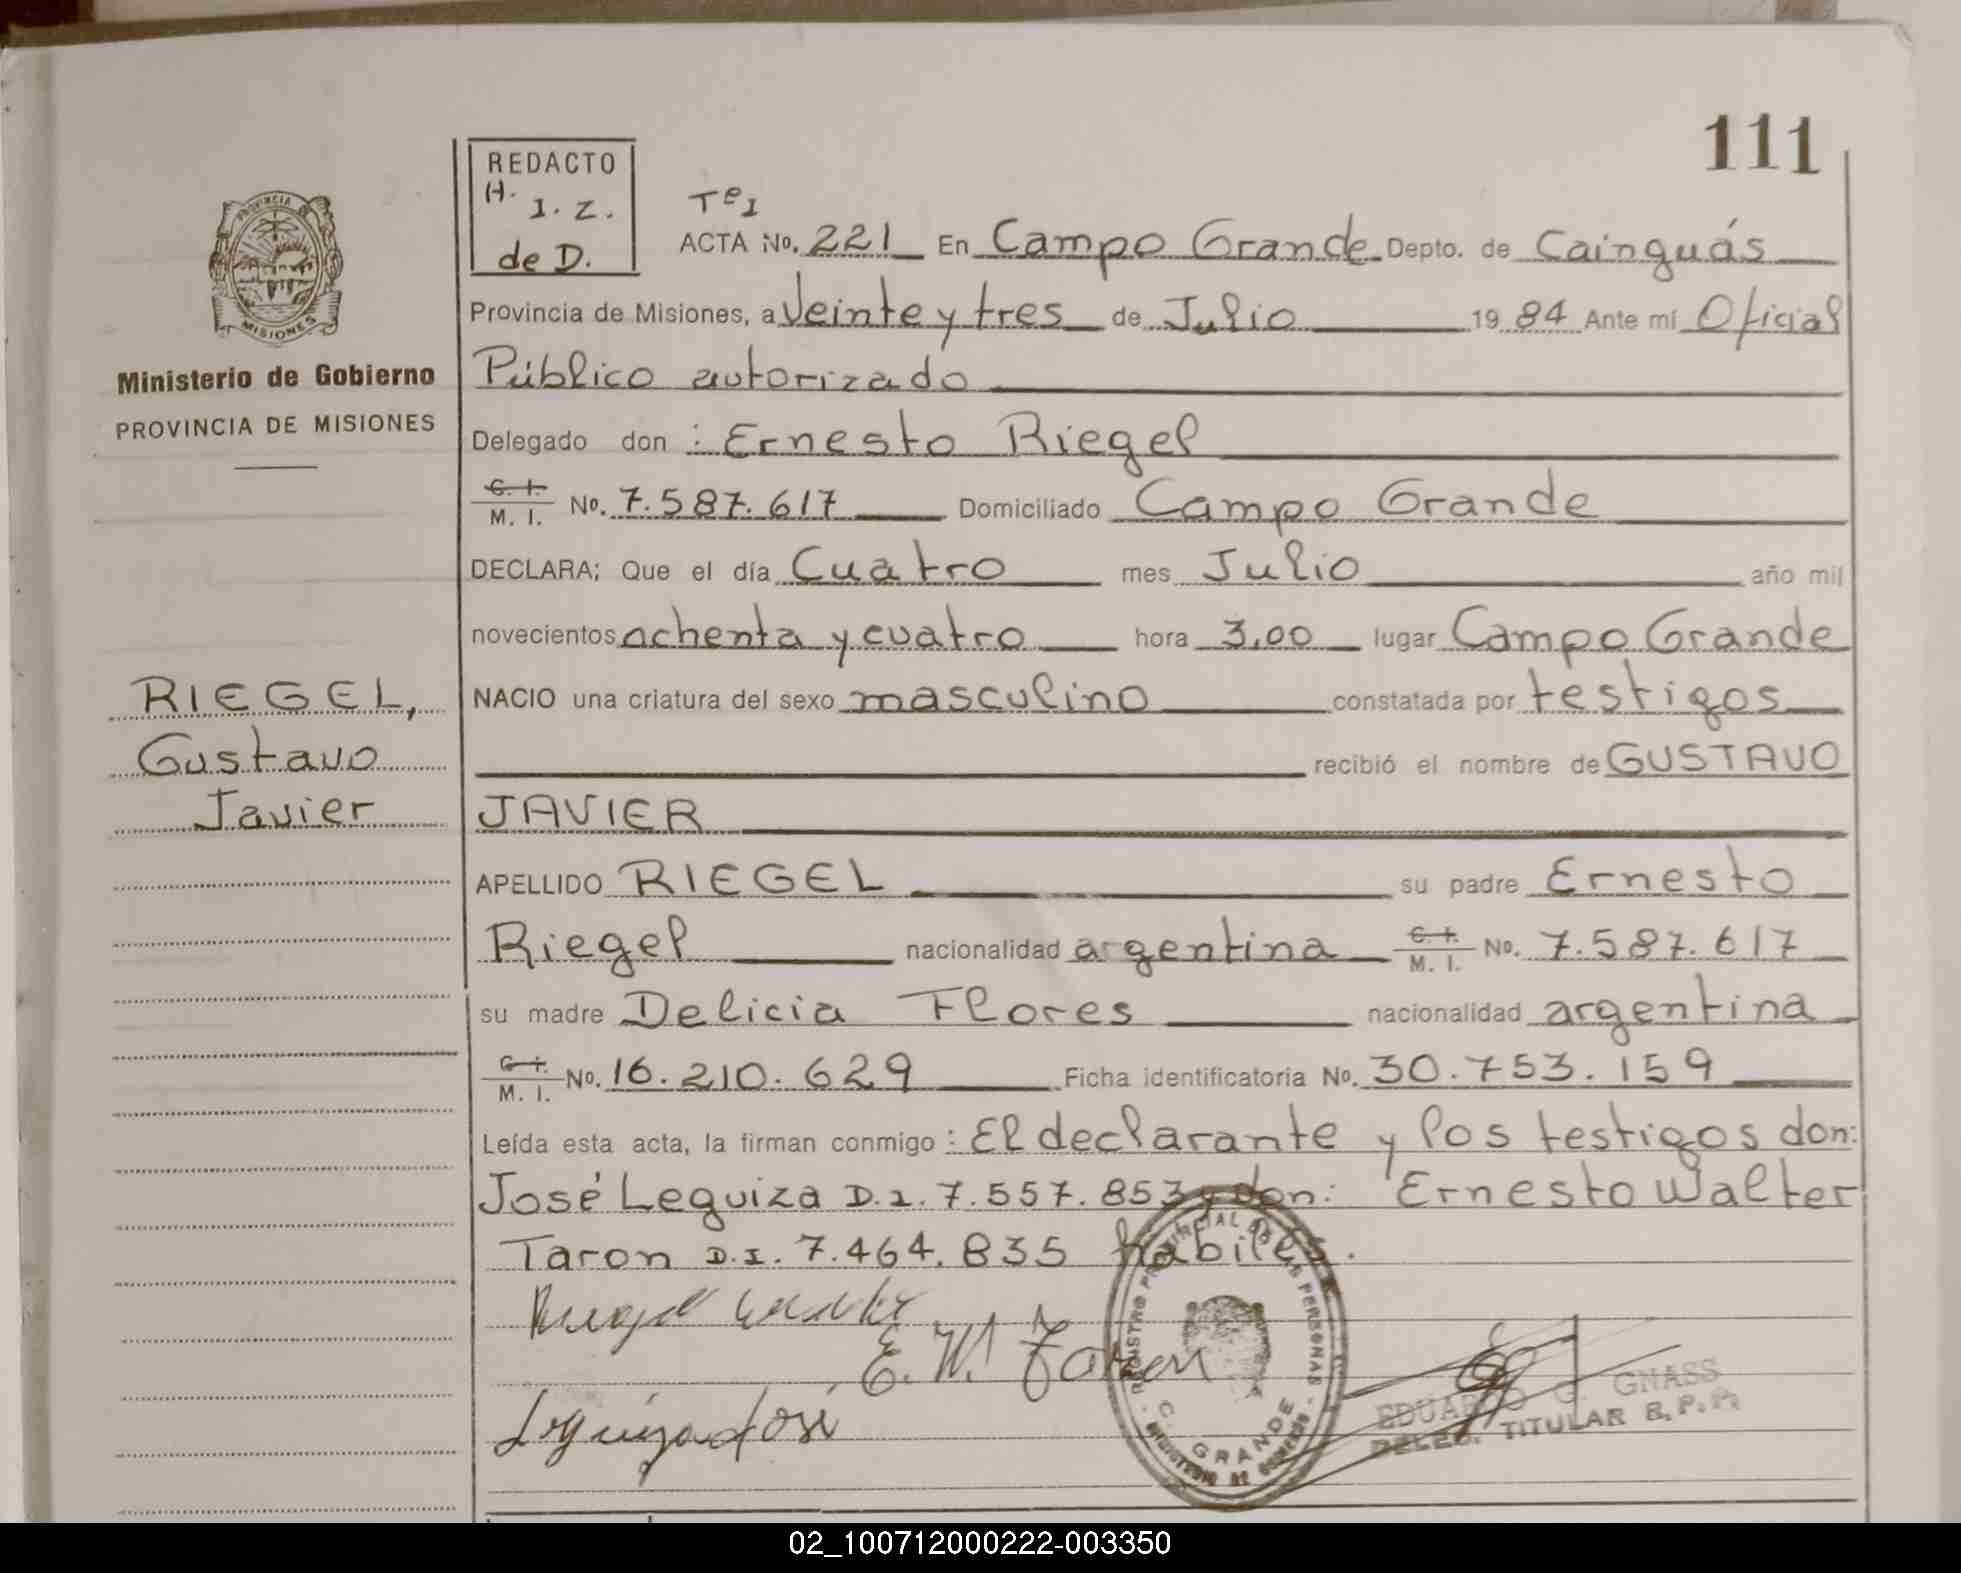 111
REDACTO
H. I. Z.
de D.
Tº I
ACTA No. 221 En Campo Grande Depto. de Cainguás
Provincia de Misiones, a Veinte y tres de Julio 19 84 Ante mí Oficial
Ministerio de Gobierno
PROVINCIA DE MISIONES
Público autorizado
Delegado don : Ernesto Riegel
C. I. M. I. No. 7.587.617 Domiciliado Campo Grande
DECLARA; Que el día Cuatro mes Julio año mil
novecientos ochenta y cuatro hora 3,00 lugar Campo Grande
RIEGEL,
Gustavo
Javier
NACIO una criatura del sexo masculino constatada por testigos
recibió el nombre de GUSTAVO
JAVIER
APELLIDO RIEGEL su padre Ernesto
Riegel nacionalidad argentina C. I. M. I. No. 7.587.617
su madre Delicia Flores nacionalidad argentina
C. I. M. I. No. 16.210.629 Ficha identificatoria No. 30.753.159
Leída esta acta, la firman conmigo : El declarante y los testigos don:
José Leguiza D.I. 7.557.853 y don: Ernesto Walter
Taron D.I. 7.464.835 habiles.
E. W. Taron
Leguiza José
REGISTRO PROVINCIAL DE LAS PERSONAS
C. GRANDE
MINISTERIO DE GOBIERNO
EDUARDO G. GNASS
DELEG. TITULAR R.P.P.
PROVINCIA
MISIONES
02_100712000222-003350